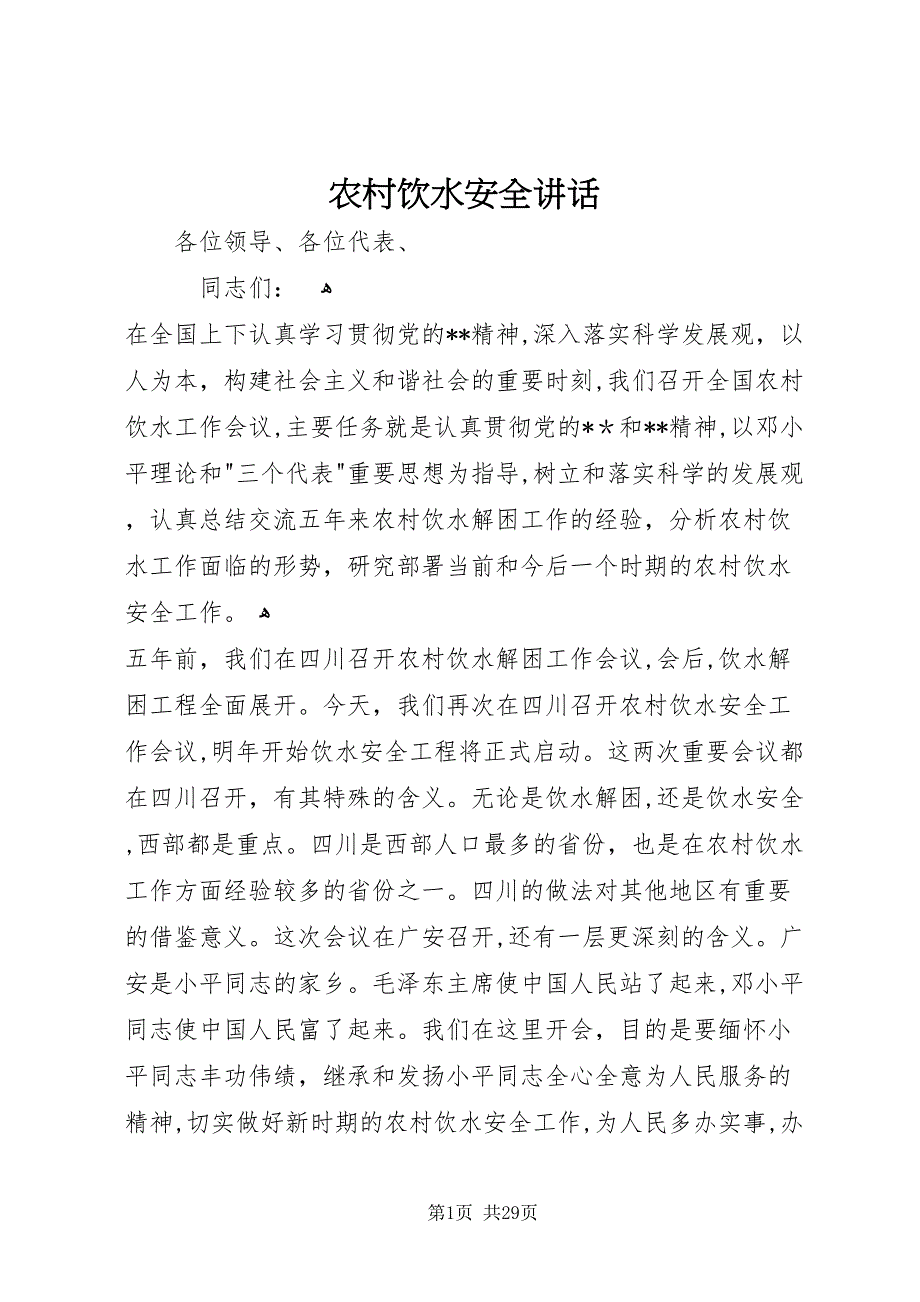 农村饮水安全讲话
各位领导、各位代表、
同志们： ﻫ
在全国上下认真学习贯彻党的**精神,深入落实科学发展观，以
人为本，构建社会主义和谐社会的重要时刻,我们召开全国农村
饮水工作会议,主要任务就是认真贯彻党的*＊和**精神,以邓小
平理论和"三个代表"重要思想为指导,树立和落实科学的发展观
，认真总结交流五年来农村饮水解困工作的经验，分析农村饮
水工作面临的形势，研究部署当前和今后一个时期的农村饮水
安全工作。 ﻫ
五年前，我们在四川召开农村饮水解困工作会议,会后,饮水解
困工程全面展开。今天，我们再次在四川召开农村饮水安全工
作会议,明年开始饮水安全工程将正式启动。这两次重要会议都
在四川召开，有其特殊的含义。无论是饮水解困,还是饮水安全
,西部都是重点。四川是西部人口最多的省份，也是在农村饮水
工作方面经验较多的省份之一。四川的做法对其他地区有重要
的借鉴意义。这次会议在广安召开,还有一层更深刻的含义。广
安是小平同志的家乡。毛泽东主席使中国人民站了起来,邓小平
同志使中国人民富了起来。我们在这里开会，目的是要缅怀小
平同志丰功伟绩，继承和发扬小平同志全心全意为人民服务的
精神,切实做好新时期的农村饮水安全工作,为人民多办实事,办
第1页 共29页